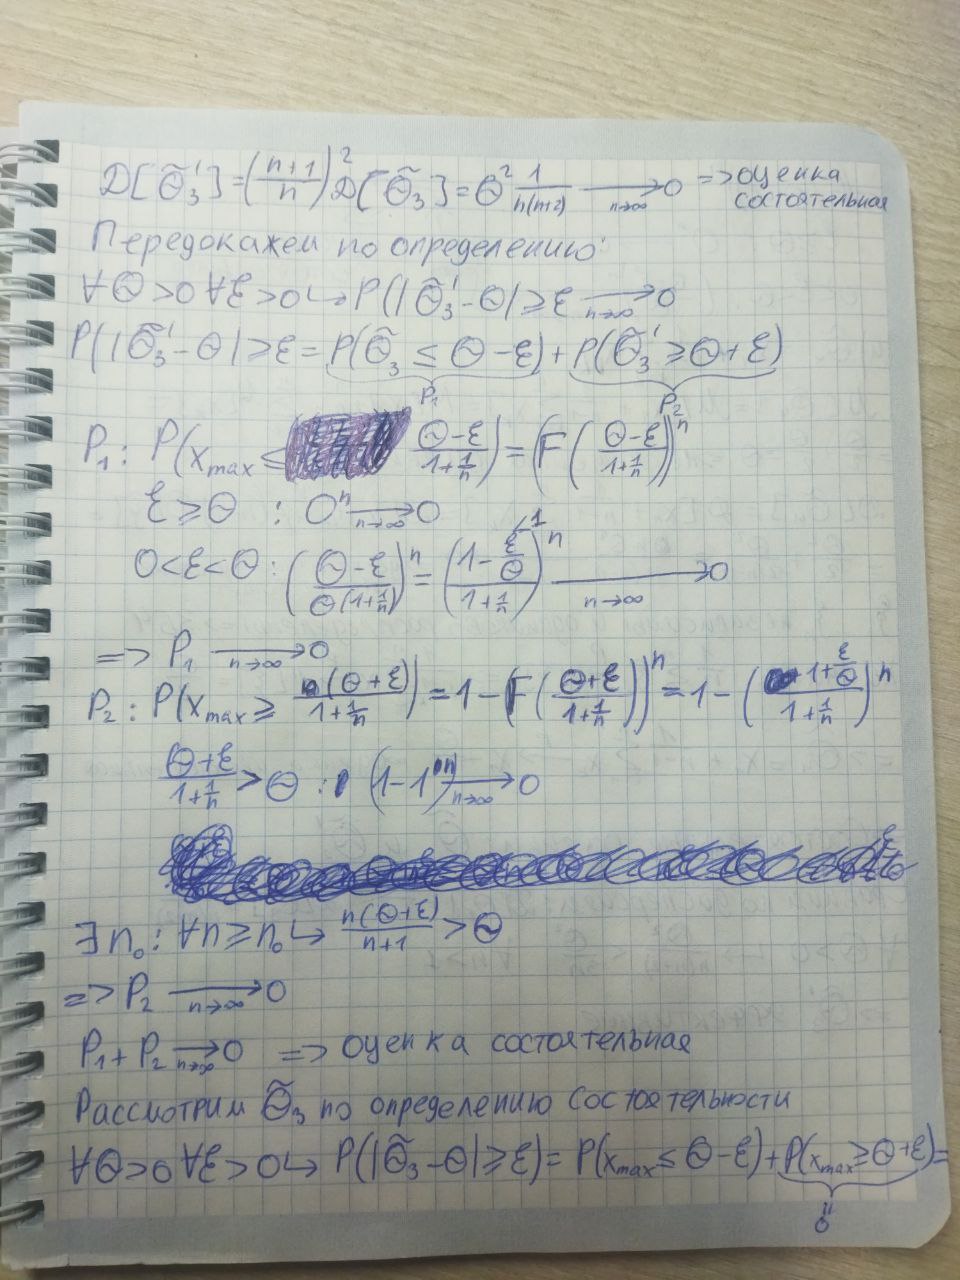 D[θ̃₃'] = ((n+1)/n)² D[θ̃₃] = θ² 1/(n(n+2)) →(n→∞) 0 => оценка состоятельная
Передокажем по определению:
∀θ>0 ∀ε>0 ↪ P(|θ̃₃'-θ|≥ε →(n→∞) 0
P(|θ̃₃'-θ|≥ε = P(θ̃₃ ≤ θ-ε) + P(θ̃₃' ≥ θ+ε)
P₁ P₂
P₁: P(x_max ≤ (θ-ε)/(1+1/n)) = (F((θ-ε)/(1+1/n))ⁿ
ε≥θ : 0ⁿ →(n→∞) 0
0<ε<θ : ((θ-ε)/(θ(1+1/n)))ⁿ = ((1-ε/θ)/(1+1/n))ⁿ →(n→∞) 0
=> P₁ →(n→∞) 0
P₂: P(x_max ≥ (θ+ε)/(1+1/n)) = 1-(F((θ+ε)/(1+1/n)))ⁿ = 1-((1+ε/θ)/(1+1/n))ⁿ
(θ+ε)/(1+1/n) > θ : (1-1ⁿ) →(n→∞) 0
∃n₀: ∀n≥n₀ ↪ n(θ+ε)/(n+1) > θ
=> P₂ →(n→∞) 0
P₁+P₂ →(n→∞) 0 => оценка состоятельная
Рассмотрим θ̃₃ по определению состоятельности
∀θ>0 ∀ε>0 ↪ P(|θ̃₃-θ|≥ε) = P(x_max ≤ θ-ε) + P(x_max ≥ θ+ε) =
"
0